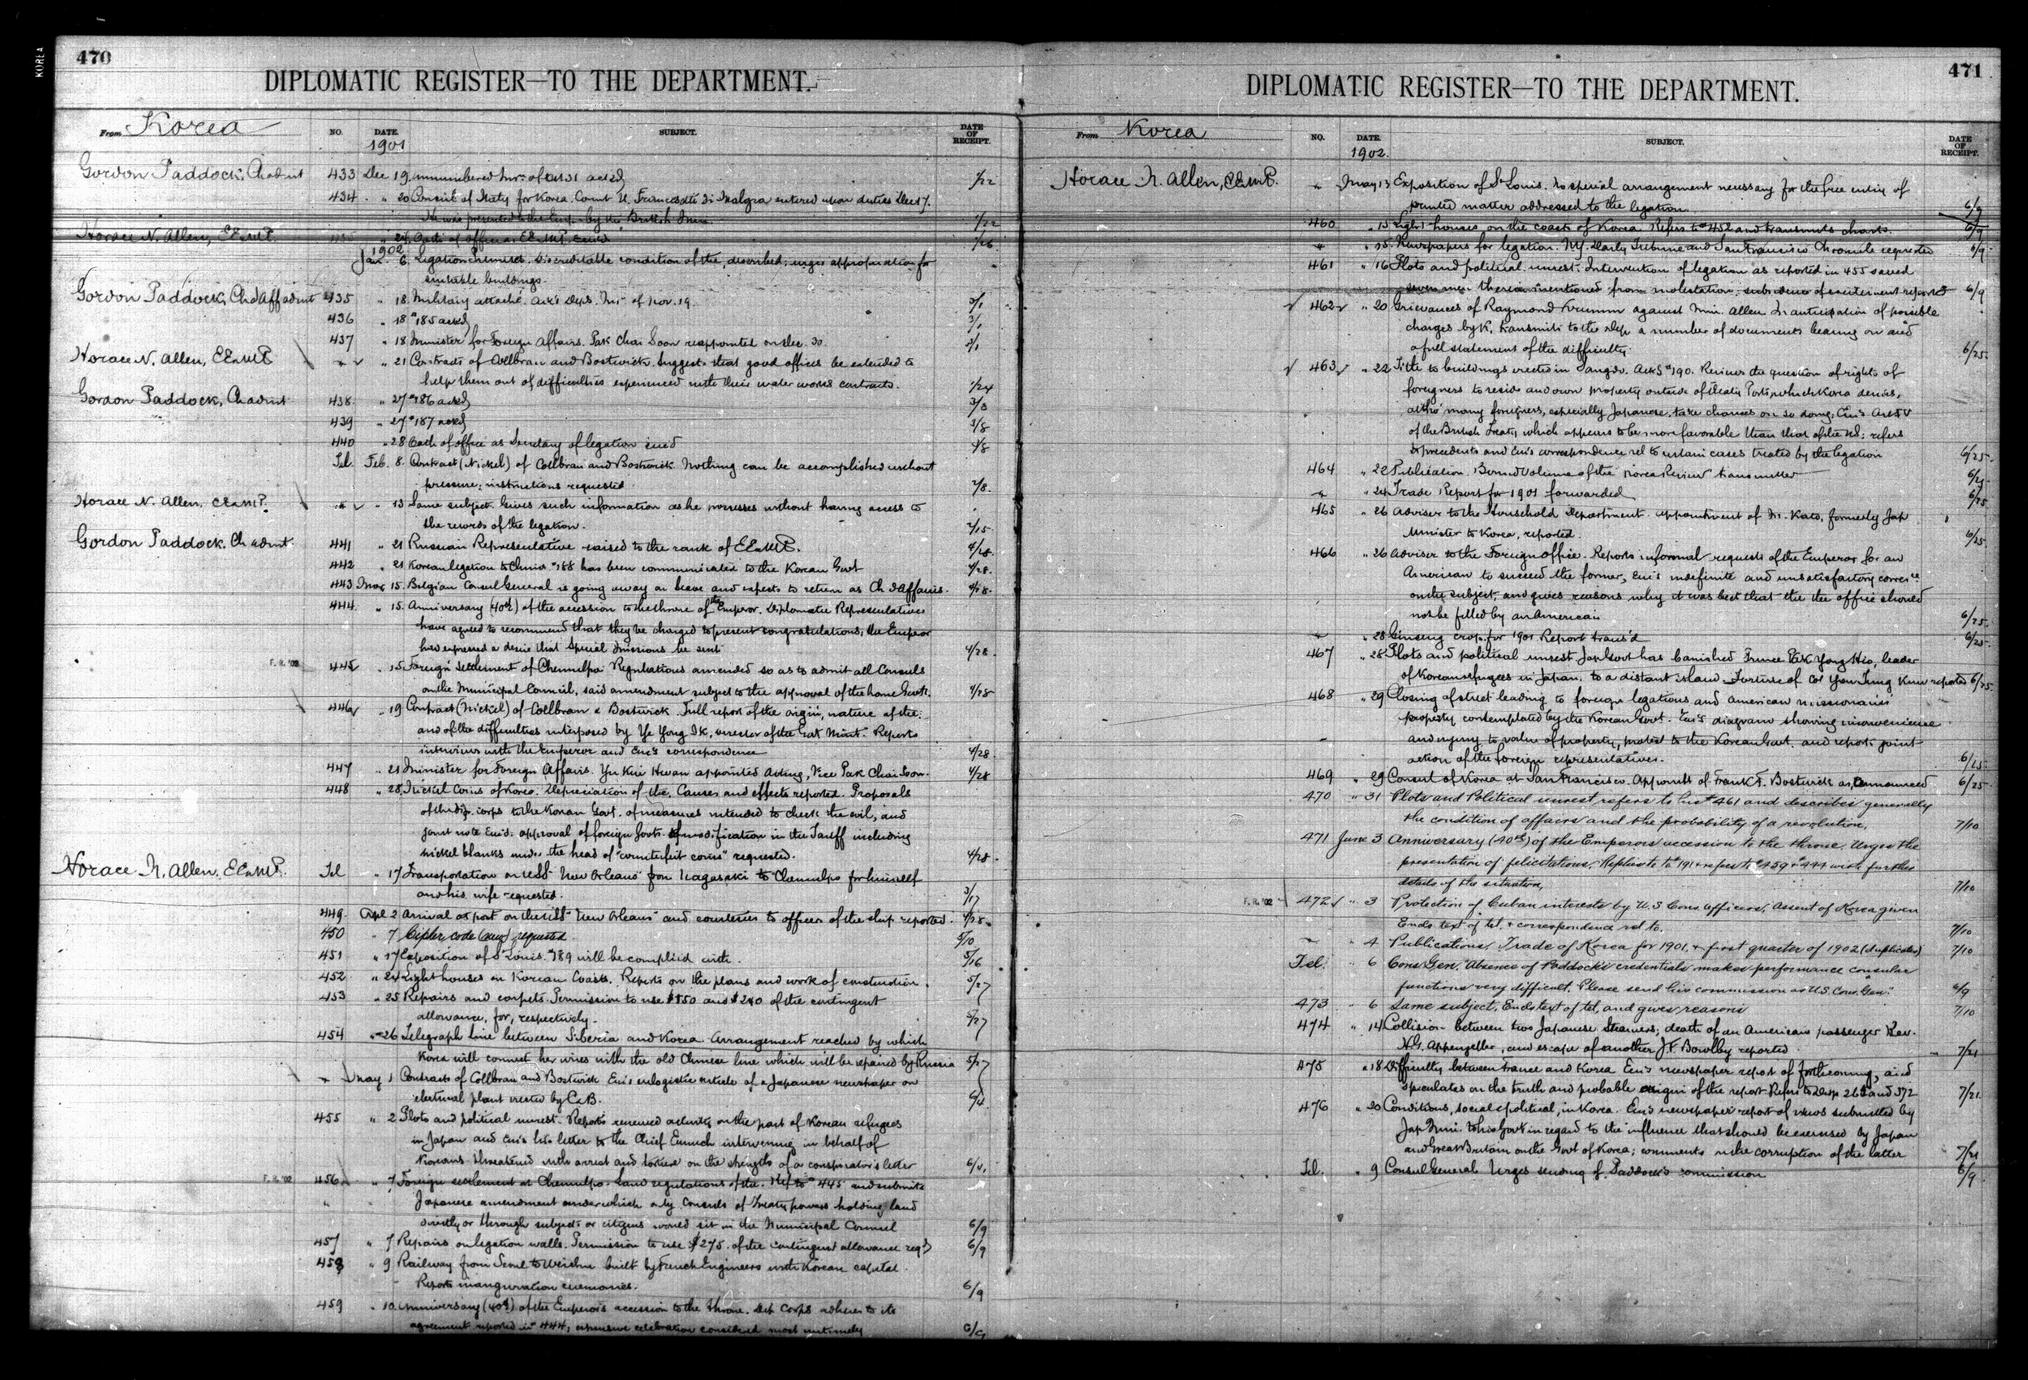 KOREA
470
DIPLOMATIC REGISTER—TO THE DEPARTMENT.
From Korea
NO. DATE. SUBJECT. DATE OF RECEIPT.
1901
Gordon Paddock, Ch adint 433 Dec 19. unnumbered Ins of Oct 31 ackd 1/22
434 " 20 Consul of Italy for Korea. Count U. Francesetti di Malgra entered upon duties Dec 17.
He was presented to the Emp by the British Min. 1/22
Horace N. Allen, EE&MP. " 24 Oath of office as EE&MP. encd 1/26
1902
Jan. 6. Legation Premises. Discreditable condition of the, described; urges appropriation for
suitable buildings.
Gordon Paddock, Ch d'Aff adint 435 " 18. Military attaché. Ack's Dep's. Ins of Nov. 19. 3/1
436 " 18 #185 ackd 3/1
437 " 18 Minister for Foreign Affairs. Pak Chai Soon reappointed on Dec. 30 3/1
Horace N. Allen, EE&MP " 21 Contracts of Collbran and Bostwick. Suggests that good offices be extended to
help them out of difficulties experienced with their water works contracts. 1/24
Gordon Paddock, Ch adint 438 " 27 #186 ackd 3/3
439 " 27 #187 ackd 3/8
440 " 28 Oath of office as Secretary of legation encd 3/8
Tel. Feb. 8. Contract (Nickel) of Collbran and Bostwick. Nothing can be accomplished without
pressure; instructions requested 2/8.
Horace N. Allen. EE&MP. " 13 Same subject. Gives such information as he possesses without having access to
the records of the legation. 2/15
Gordon Paddock. Ch adint. 441 " 21 Russian Representative raised to the rank of EE&MP. 4/28
442 " 21 Korean legation to China #188 has been communicated to the Korean Govt 4/28.
443 Mar 15. Belgian Consul General is going away on leave and expects to return as Ch d'Affaires. 4/28.
444 " 15. Anniversary (40th) of the accession to the throne of the Emperor. Diplomatic Representatives
have agreed to recommend that they be charged to present congratulations; the Emperor
has expressed a desire that Special Missions be sent 4/28
F. R. '02 445 " 15 Foreign Settlement of Chemulpo Regulations amended so as to admit all Consuls
on the Municipal Council, said amendment subject to the approval of the home Govts. 4/28
446 " 19 Contract (Nickel) of Collbran & Bostwick. Full report of the origin, nature of the.
and of the difficulties interposed by Ye Yong Ik, director of the Govt Mint. Reports
interviews with the Emperor and Enc's correspondence 4/28
447 " 21 Minister for Foreign Affairs. Yu Kui Hwan appointed Acting, Vice Pak Chai Soon. 4/28
448 " 28, Nickel Coins of Korea. Depreciation of the, Causes and effects reported. Proposals
of the dip. corps to the Korean Govt. of measures intended to check the evil, and
joint note Enc'd. approval of foreign Govts. of modification in the Tariff including
nickel blanks under the head of "counterfeit coins" requested. 4/28.
Horace N. Allen, EE&MP. Tel " 17 Transportation on USS "New Orleans" from Nagasaki to Chemulpo for himself
and his wife requested. 3/17
449. Apl 2 Arrival at port on the USS "New Orleans" and courtesies to officers of the ship reported. 4/28
450 " 7 Cipher code (new) requested. 5/10
451 " 17 Exposition of St Louis. #189 will be complied with. 5/16
452. " 24 Light houses on Korean Coasts. Reports on the plans and work of construction. 5/27
453 " 25 Repairs and carpets. Permission to use $150 and $240 of the contingent
allowance, for, respectively. 5/27
454 " 26 Telegraph line between Siberia and Korea. Arrangement reached by which
Korea will connect her wires with the old Chinese line which will be repaired by Russia 5/27
May 1 Contracts of Collbran and Bostwick Enc's eulogistic article of a Japanese newspaper on
electrical plant erected by C&B. 6/4
455 " 2 Plots and political unrest. Reports renewed activity on the part of Korean refugees
in Japan and Enc's his letter to the Chief Eunuch intervening in behalf of
Koreans threatened with arrest and torture on the strength of a conspirator's letter 6/4.
F. R. '02 456 " 7 Foreign settlement at Chemulpo. Land regulations of the. Ref to #445 and submits
Japanese amendment under which only Consuls of Treaty powers holding land
directly or through subjects or citizens would sit in the Municipal Council 6/9
457 " 7 Repairs on legation walls. Permission to use $275. of the contingent allowance reqd 6/9
458 " 9 Railway from Seoul to Weichu built by French Engineers with Korean capital.
Reports inauguration ceremonies. 6/9
459 " 10. Anniversary (40th) of the Emperor's accession to the throne. Dip Corps adheres to its
agreement reported in #444; expensive celebration considered most untimely 6/9
471
DIPLOMATIC REGISTER—TO THE DEPARTMENT.
From Korea
NO. DATE. SUBJECT. DATE OF RECEIPT.
1902.
Horace N. Allen, EE&MP. May 13 Exposition of St Louis. No special arrangement necessary for the free entry of
printed matter addressed to the legation 6/9
460 " 15 Light-houses on the coast of Korea. Refers to #452 and transmits charts. 6/9
" 15 Newspapers for legation. N.Y. Daily Tribune and San Francisco Chronicle requested 6/9.
461 " 16 Plots and political unrest. Intervention of legation as reported in 455 saved
seven men therein mentioned from molestation; subsidence of excitement reported 6/9
462 " 20 Grievances of Raymond Krumm against Min. Allen. In anticipation of possible
charges by K, transmits to the Dep a number of documents bearing on and
a full statement of the difficulty. 6/25
463 " 22 Title to buildings erected in Songdo. Ack's #190. Reviews the question of rights of
foreigners to reside and own property outside of Treaty Ports, which Korea denies,
altho' many foreigners, especially Japanese, take chances on so doing; Enc's Art IV
of the British Treaty which appears to be more favorable than that of the US; refers
to precedents and Enc's correspondence rel to certain cases treated by the legation 6/25
464 " 22 Publication. Bound Volume of the Korea Review transmitted 6/25
" 24 Trade Report for 1901 forwarded 6/25
465 " 26 Adviser to the Household Department. Appointment of Mr. Kato, formerly Jap
Minister to Korea, reported. 6/25.
466 " 26 Adviser to the Foreign Office. Reports informal requests of the Emperor for an
American to succeed the former, Enc's indefinite and unsatisfactory corres'ce
on the subject, and gives reasons why it was best that the the office should
not be filled by an American 6/25.
" 28 Ginseng crop for 1901. Report trans'd 6/25
467 " 28 Plots and political unrest. Jap Govt has banished Prince Pak Yong Hio, leader
of Korean refugees in Japan, to a distant island. Torture of Col Yun Tung Kun reported 6/25
468 " 29 Closing of street leading to foreign legations and American missionaries'
property contemplated by the Korean Govt. Enc's diagram showing inconvenience
and injury to value of property, protest to the Korean Govt. and reports joint
action of the foreign representatives. 6/25
469 " 29 Consul of Korea at San Francisco. Appointmt of Frank F. Bostwick as, announced 6/25
470 " 31 Plots and Political unrest refers to his #461 and describes generally
the condition of affairs and the probability of a revolution. 7/10
471 June 3 Anniversary (40th) of the Emperor's accession to the throne. Urges the
presentation of felicitations. Replies to #191 & refers to #459 & #444 with further
details of the situation, 7/10
F. R. '02 472 " 3 Protection of Cuban interests by U.S. Cons. Officers. Assent of Korea given
Encls text of tel. & correspondence rel to. 7/10
" 4 Publications. Trade of Korea for 1901, & first quarter of 1902 (duplicates) 7/10
Tel. " 6 Cons. Gen. "Absence of Paddock's credentials makes performance consular
functions very difficult. Please send his commission as U.S. Con. Gen." 6/9
473 " 6 Same subject. Encls text of tel. and gives reasons 7/10
474 " 14 Collision between two Japanese Steamers; death of an American passenger Rev.
H.G. Appenzeller, and escape of another J.F. Bowlby reported 7/21
475 " 18 Difficulty between France and Korea Enc's newspaper report of forthcoming, and
speculates on the truth and probable origin of the report Refers to Desp 268 and 372 7/21
476 " 20 Conditions, social & political, in Korea. Enc's newspaper report of views submitted by
Jap Mini. to his Govt in regard to the influence that should be exercised by Japan
and Great Britain on the Govt of Korea; comments on the corruption of the latter 7/21
Tel. " 9 Consul General Urges sending of Paddock's commission 6/9.